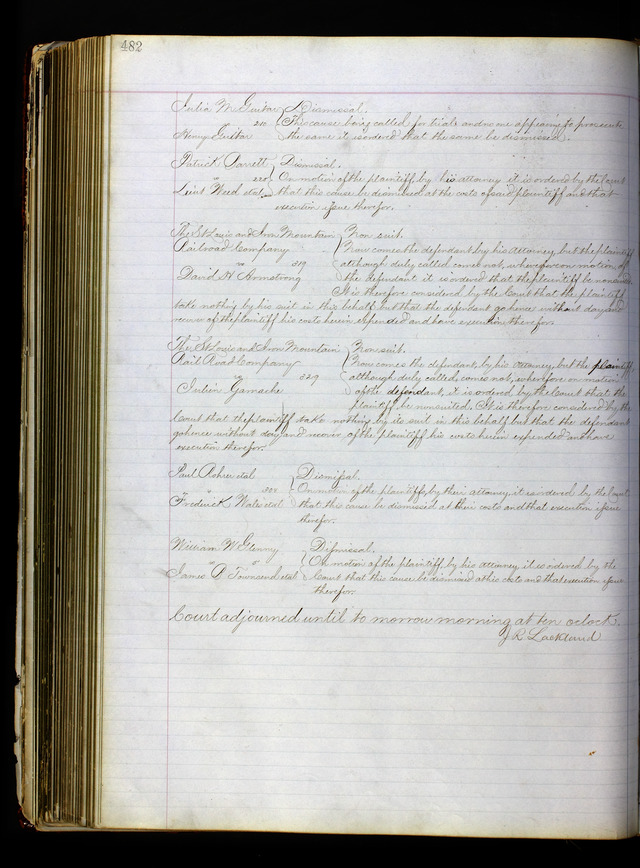 482
Julia M. Guitar } Dismissal.
vs 210 } The cause being called for trial and no one appearing to prosecute
Henry Guitar } the same it is ordered that the same be dismissed.
Patrick Barrett } Dismissal.
vs 220 } On motion of the plaintiff, by his attorney it is ordered by the Court
Weed et al. } that this cause be dismissed at the costs of said plaintiff and that
execution issue therefor.
The St Louis and Iron Mountain } Non suit.
Railroad Company } Now comes the defendant by his Attorney, but the plaintiff
vs 319 } although duly called comes not, wherefore on motion of
David H Armstrong } the defendant it is ordered that the plaintiff be nonsuited
It is therefore considered by the Court that the plaintiff
take nothing by his suit in this behalf but that the defendant go hence without day and
recover of the plaintiff his costs herein expended and have execution therefor.
The St Louis and Iron Mountain } Non suit.
Rail Road Company } Now comes the defendant, by his attorney, but the plaintiff
vs 329 } although duly called, comes not, wherefore on motion
Julien Gamache } of the defendant, it is ordered by the Court that the
plaintiff be nonsuited. It is therefore considered by the
Court that the plaintiff take nothing by its suit in this behalf but that the defendant
go hence without day and recover of the plaintiff his costs herein expended and have
execution therefor.
Paul et al } Dismissal.
vs } On motion of the plaintiffs, by their attorney, it is ordered by the Court
Frederick et al } that this cause be dismissed at their costs and that execution issue
therefor.
William W. Glenny } Dismissal.
vs } On motion of the plaintiff, by his attorney, it is ordered by the
James P. Townsend et al } Court that this cause be dismissed at his costs and that execution issue
therefor.
Court adjourned until to morrow morning at ten oclock.
J R Lackland